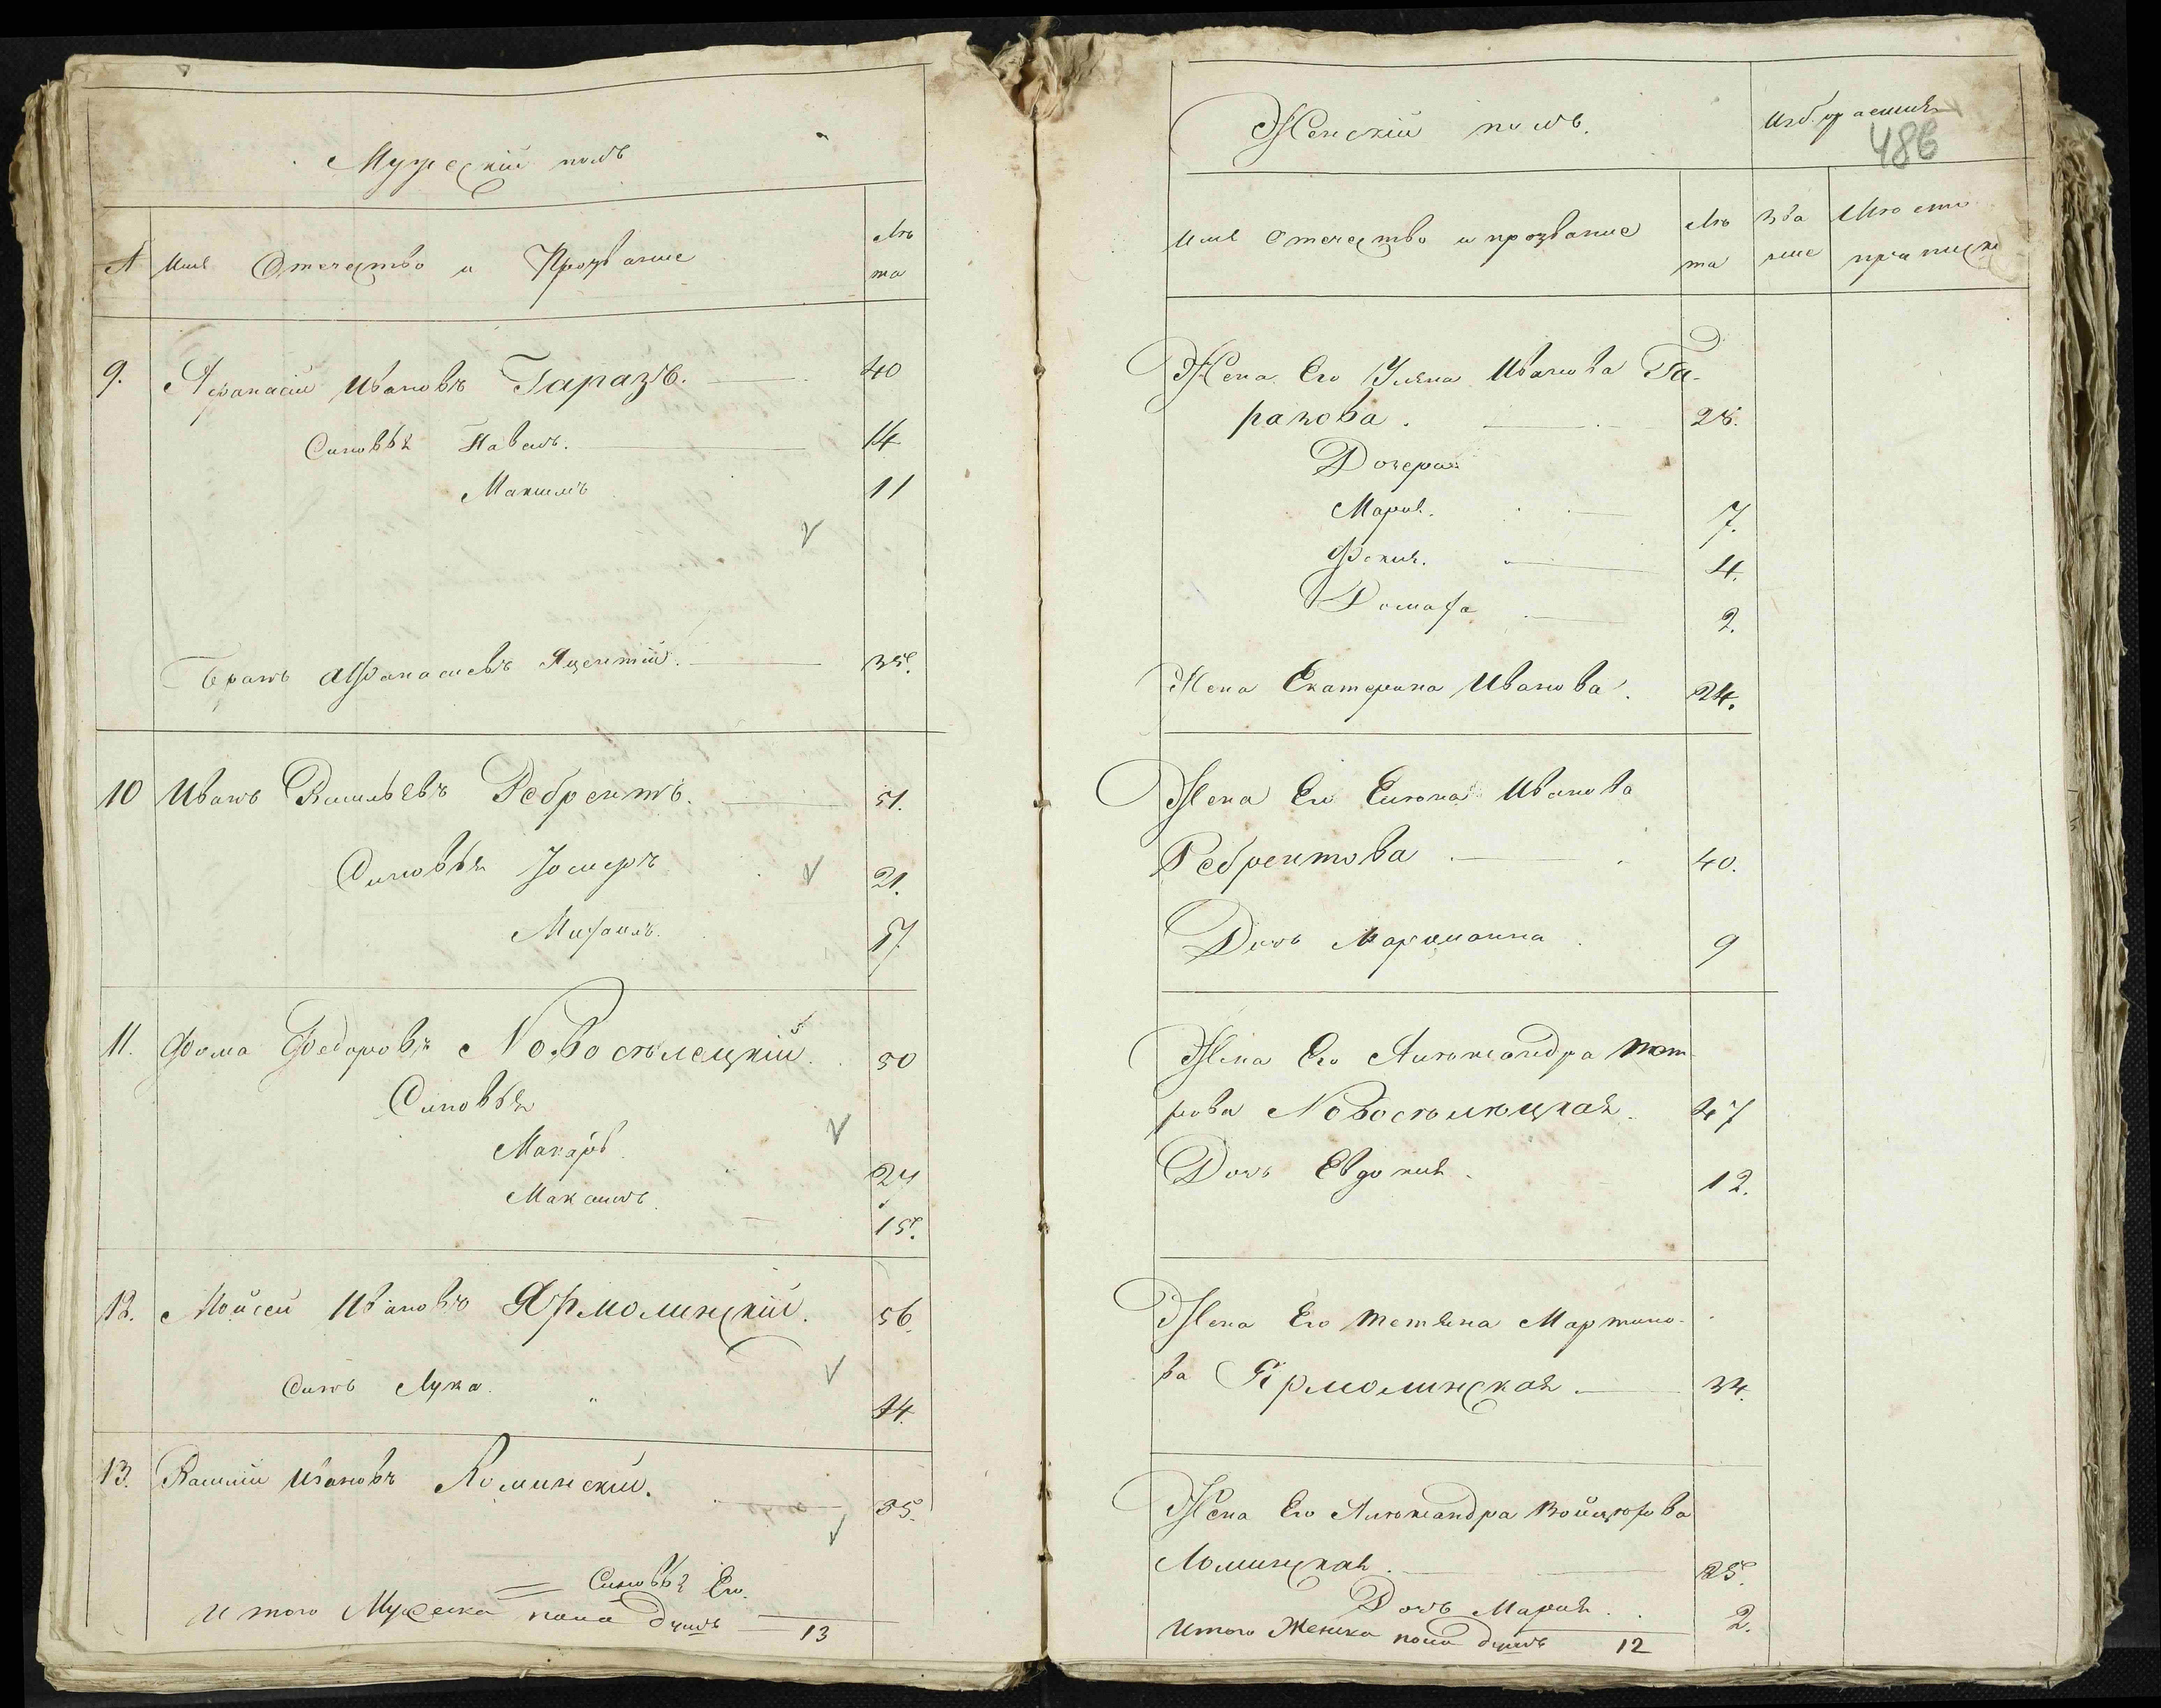 Мужескій полъ
№ Имя Отечество и Прозвание Лѣ
та
9. Афанасій Ивановъ Гаразъ. 40
Сыновья Павелъ. 14
Максимъ 11
Братъ Афанасиевъ Яцентій. 35.
10 Иванъ Васильевъ Ребрентъ. 51.
Сыновья Іосифъ 21.
Михаилъ. 17
11. Фома Федоровъ Новоселецкій. 50
Сыновья
Макаръ. 24
Максимъ. 15.
12. Мойсей Ивановъ Ярмолинскій. 56.
Сынъ Лука. 14.
13. Василій Ивановъ Ломинскій. 35.
Сыновья Его
Итого Мужеска пола душъ 13
Женскій полъ.
486
Имя Отечество и прозвание Лѣ
та
Зва
ние
Место
приписки
Жена Его Уляна Иванова Га-
разова. 28.
Дочери
Мария. 7.
Фекия. 4.
Домаха 2.
Жена Екатерина Иванова. 24.
Жена Его Елена Иванова
Ребрентова 40.
Дочь Марианна 9
Жена Его Александра Пет-
рова Новоселецкая. 47
Дочь Евдокия. 12.
Жена Его Тетяна Мартино-
ва Ярмолинская 34.
Жена Его Александра Войцехова
Ломинская. 25.
Дочь Мария. 2.
Итого Женска пола душъ 12